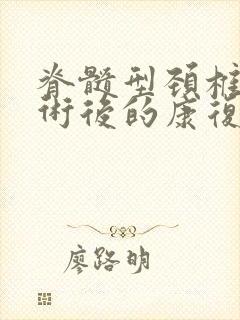 脊髓型頚椎
術後的康復
廖路明